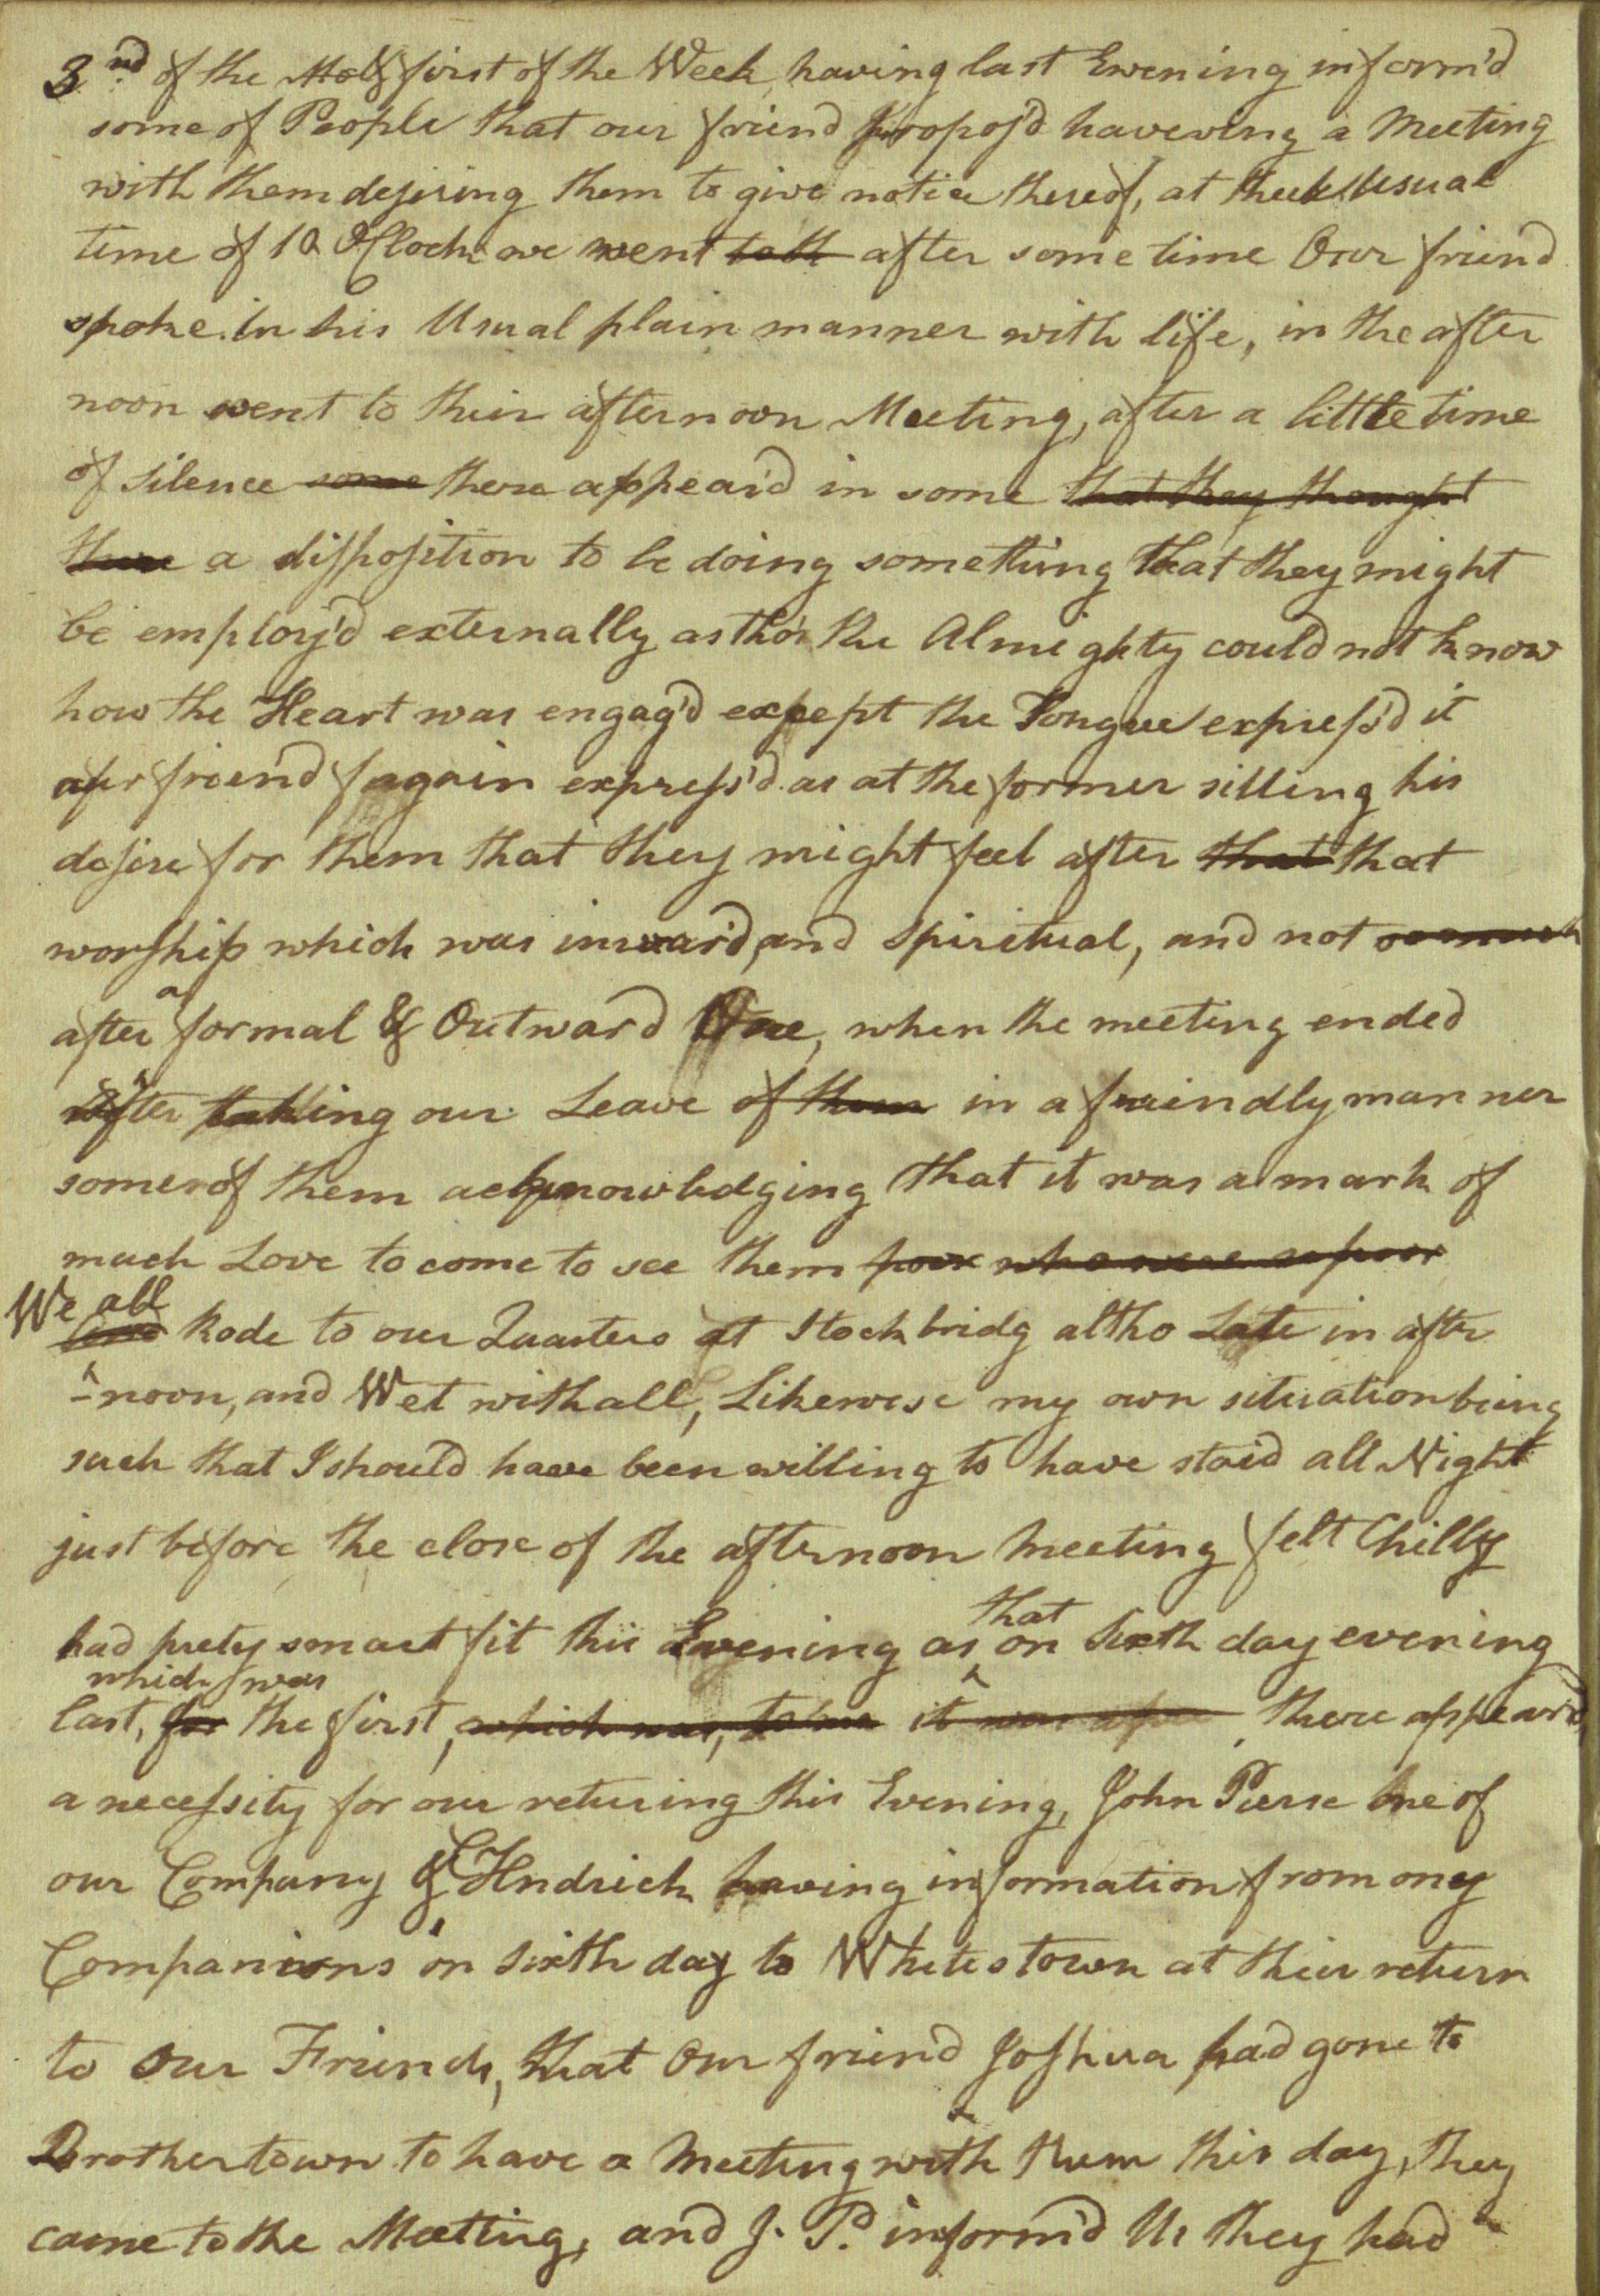 3nd of the Mo & first of the Week, having last Evening inform'd
some of People that our friend propos'd haveving a Meeting
with them desiring them to give notice thereof, at their Usual
time of 10 OClock we went after some time Our friend
spoke in his Usual plain manner with life, in the after
noon went to their afternoon Meeting, after a little time
of silence some there appear'd in some that they thought
there a disposition to be doing something that they might
be employ'd externally as tho' the Almighty could not know
how the Heart was engag'd except the Tongue express'd it
our friend again express'd as at the former sitting his
desire for them that they might feel after that that
worship which was inward, and spiritual, and not so much
after a formal & Outward One, when the meeting ended
after taking our Leave of them in a friendly manner
some of them acknowledging that it was a mark of
much Love to come to see them poor who were so poor
We all Rode to our Quarters at Stockbridg altho Late in after
-noon, and Wet withall, Likewise my own situation being
such that I should have been willing to have staid all Night
just before the close of the afternoon Meeting felt Chilly
had prety smart fit this Evening as that on Sixth day evening
last, for which was the first, which was, to me it was a there appear'd
a necessity for our returing this Evening, John Pierse One of
our Company & Hndrick having information from my
Companions on sixth day to Whitestown at their return
to our Friends, that Our friend Joshua had gone to
Brothertown to have a Meeting with them this day, they
came to the Meeting, and J. P. inform'd Us they had